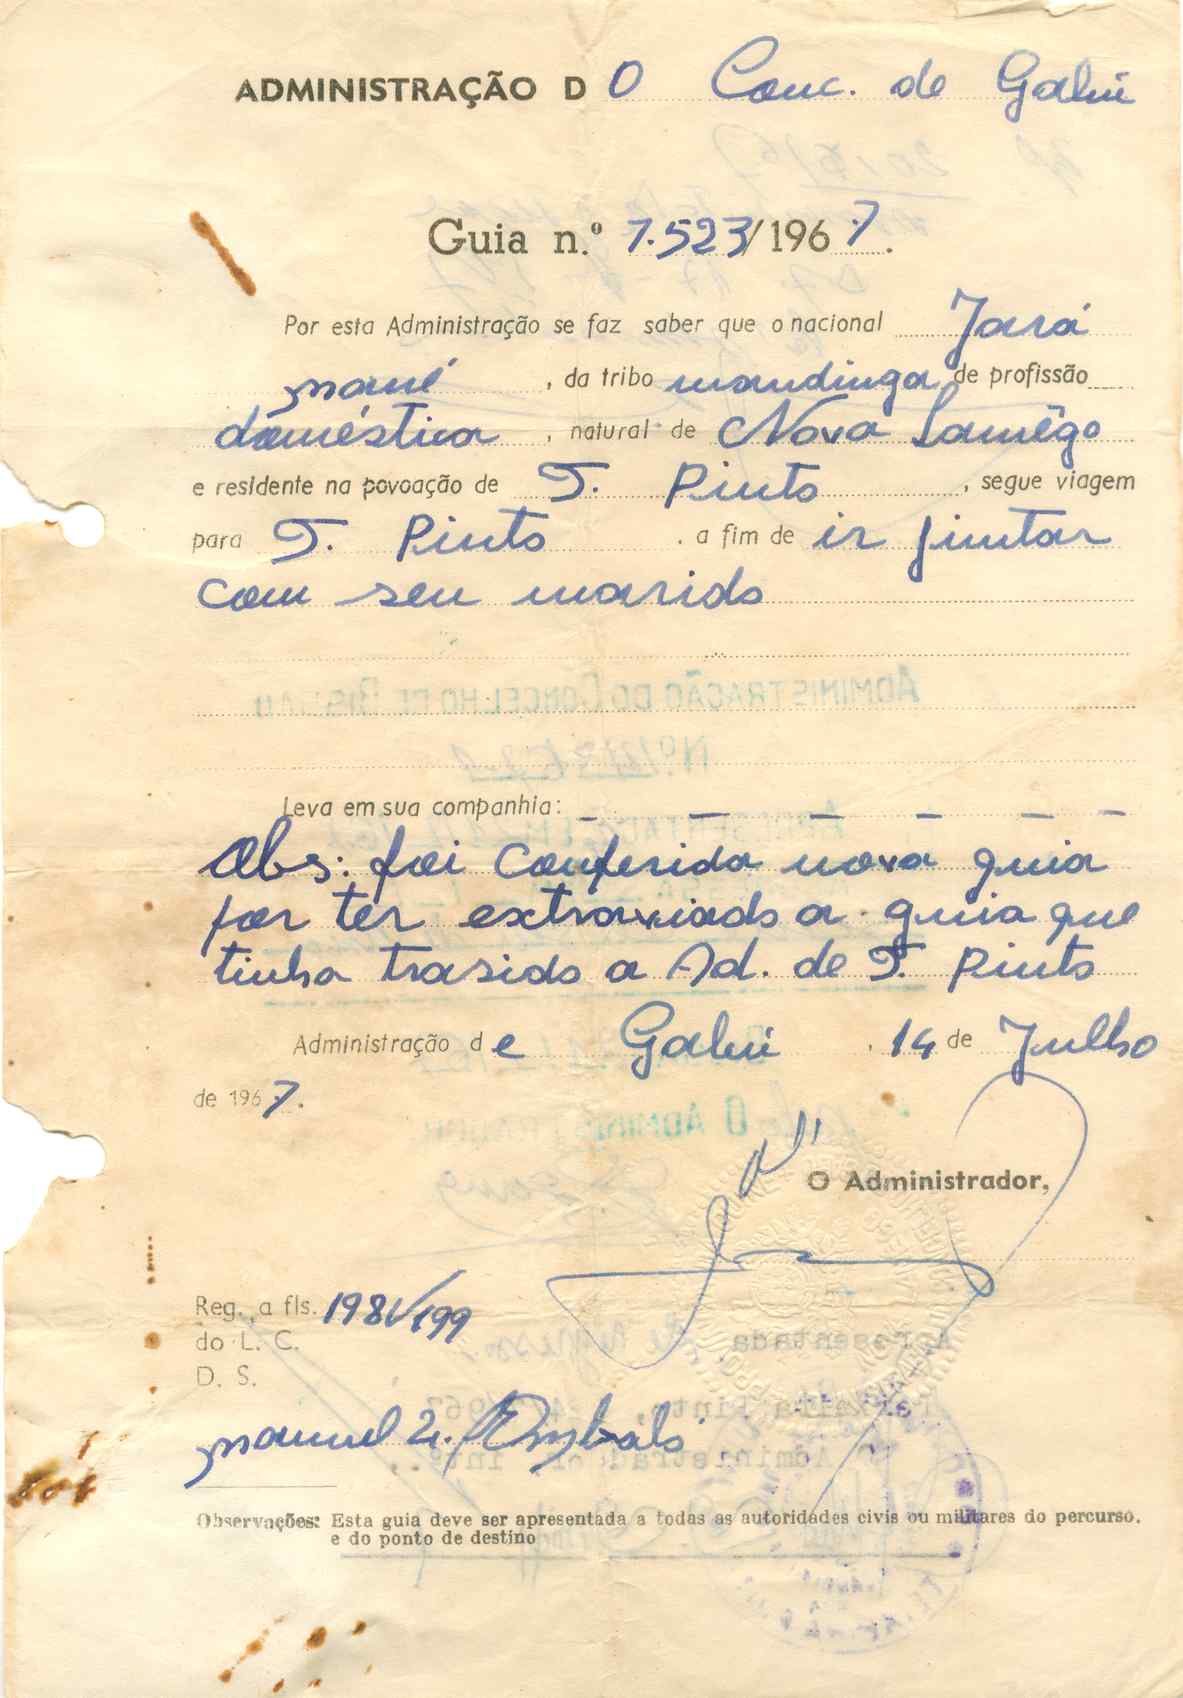 ADMINISTRAÇÃO DO Conc. de Gabú
Guia n.º 7.523/1967.
Por esta Administração se faz saber que o nacional Jará
mané, da tribo mandinga de profissão
doméstica, natural de Nova Lamêgo
e residente na povoação de T. Pinto, segue viagem
para T. Pinto. a fim de ir juntar
com seu marido
Leva em sua companhia: — — — — — —
Obs: foi conferida nova guia
por ter extraviado a guia que
tinha trasido a Ad. de T. Pinto
Administração de Gabú, 14 de Julho
de 1967.
O Administrador,
Reg. a fls. 198v/199
do L. C.
D. S.
Manuel
Observações: Esta guia deve ser apresentada a todas as autoridades civis ou militares do percurso.
e do ponto de destino